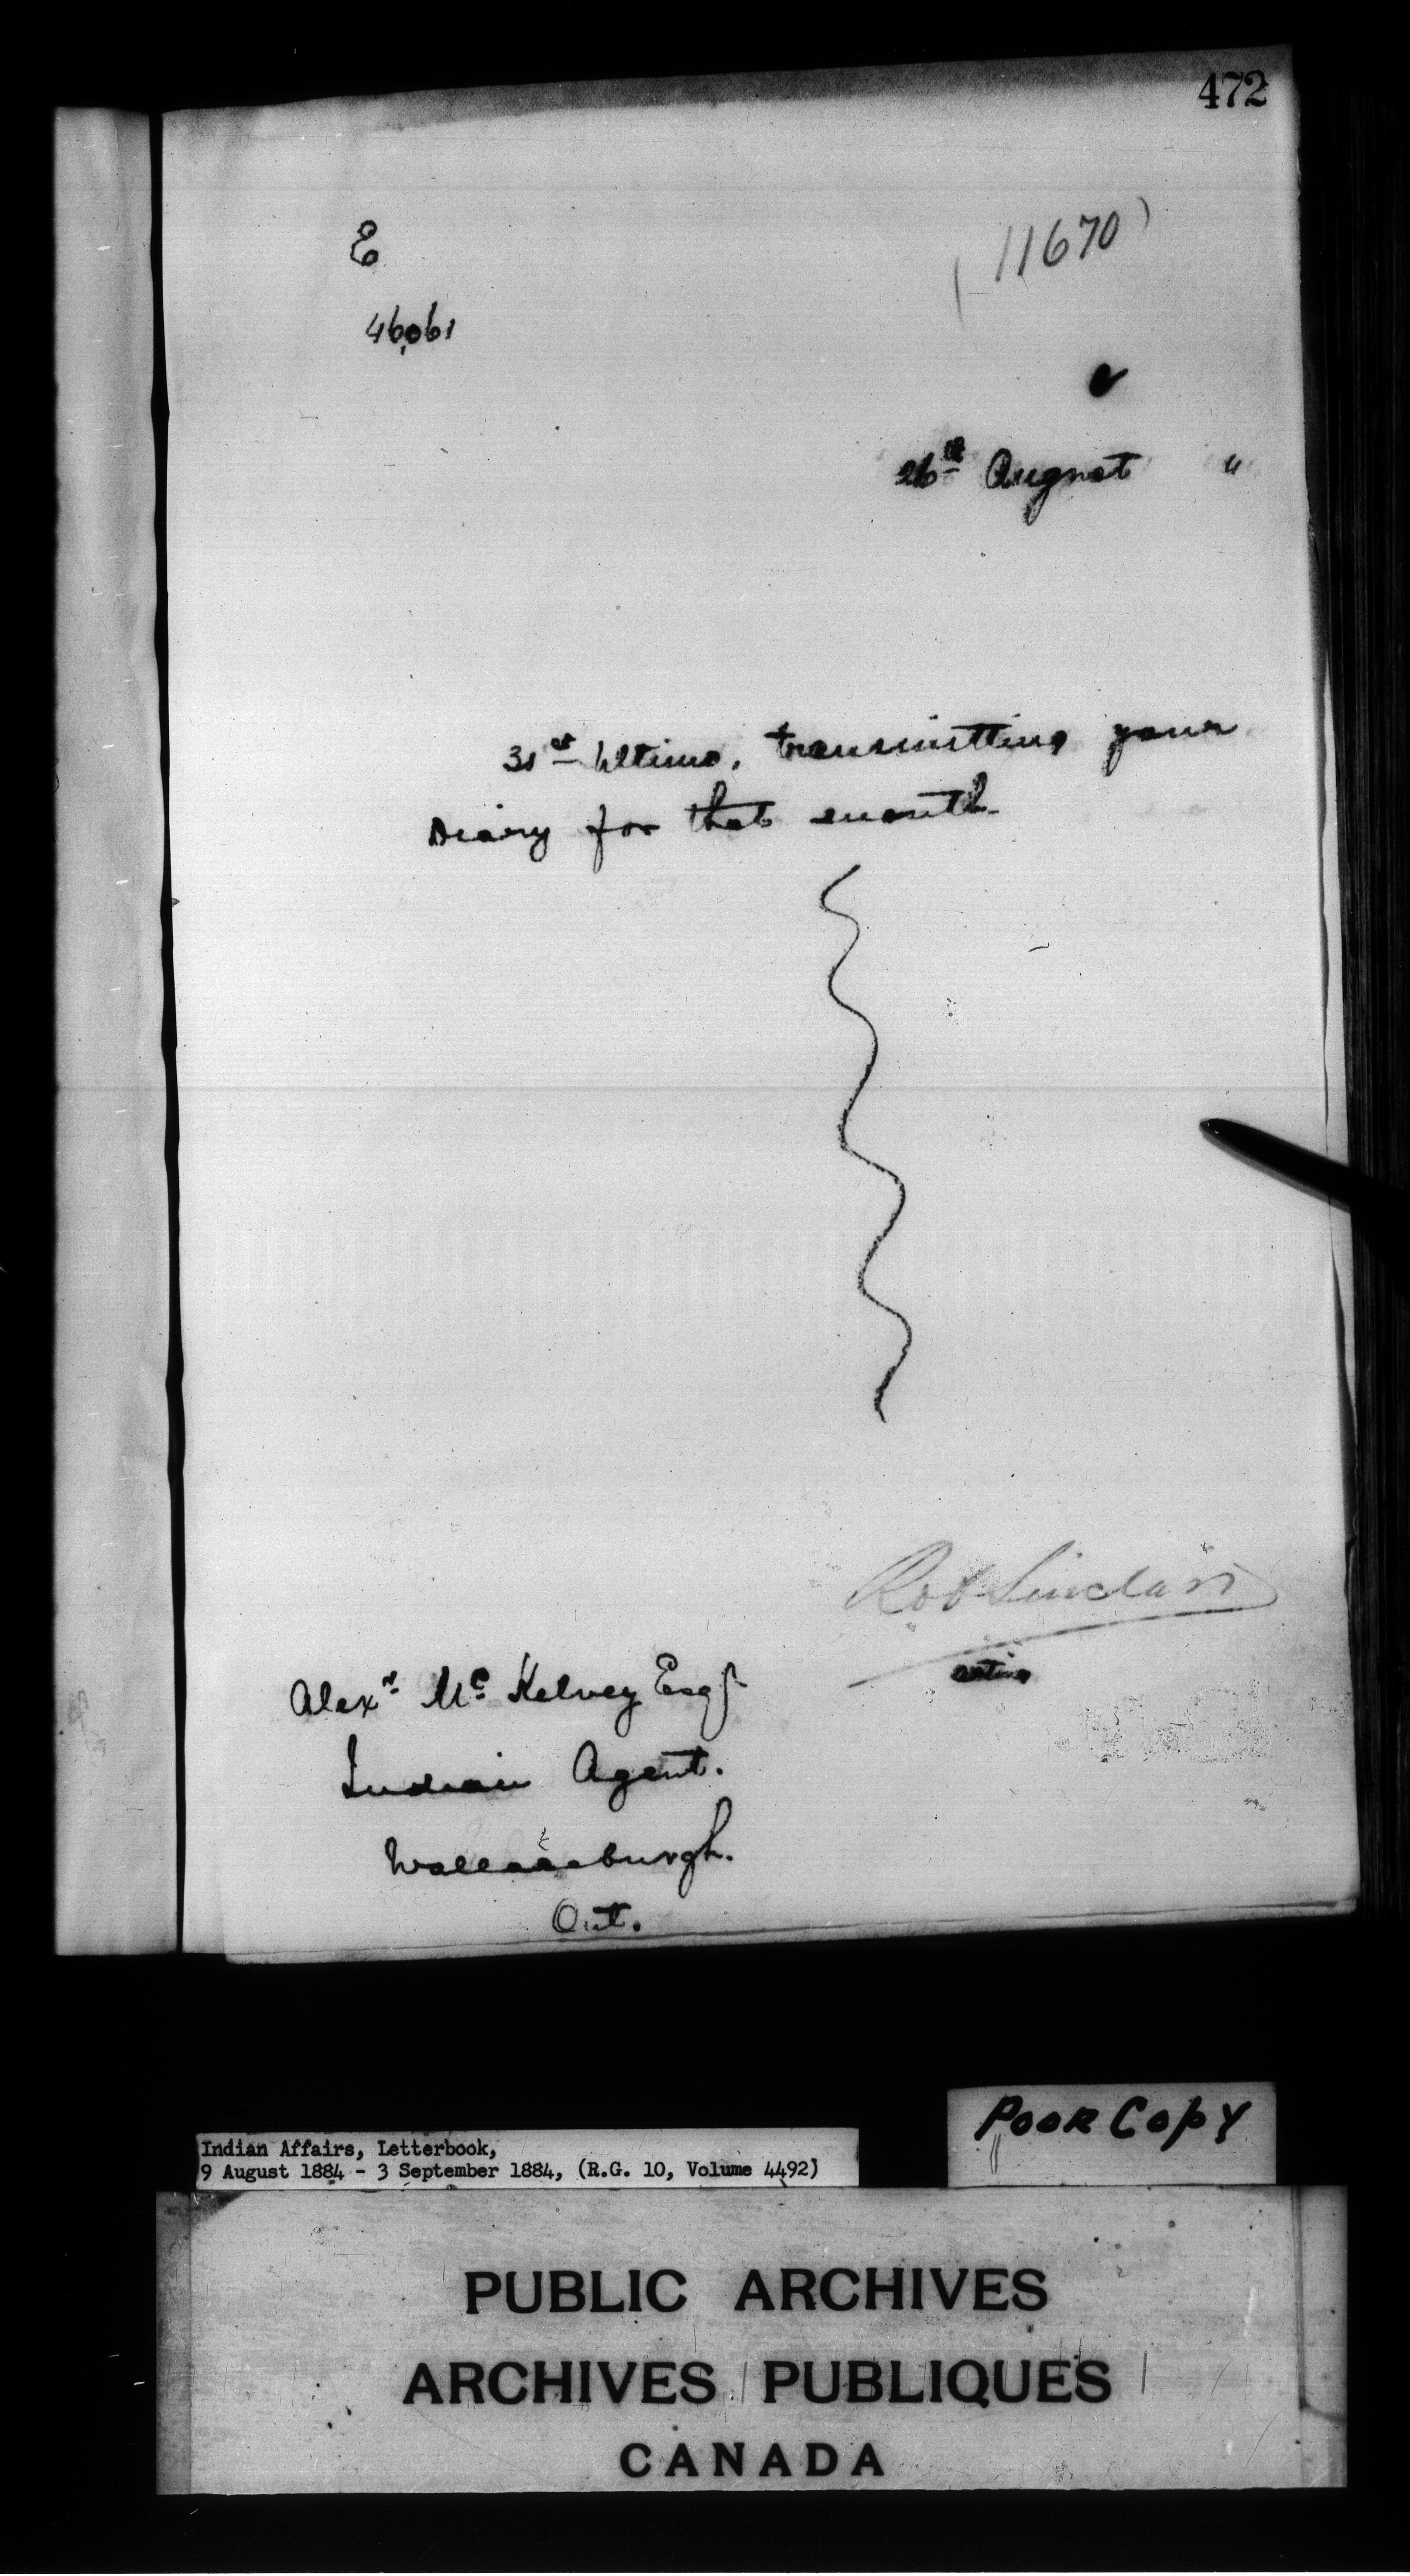 472
E
(11670)
46,061
26th August "
31st Ultimo, transmitting your
Diary for that month
Rob Sinclair
acting
Alexr Mc Kelvey Esqr
Indian Agent.
Wallaceburgh.
Ont.
Poor Copy
Indian Affairs, Letterbook,
9 August 1884 - 3 September 1884, (R.G. 10, Volume 4492)
PUBLIC ARCHIVES
ARCHIVES PUBLIQUES
CANADA